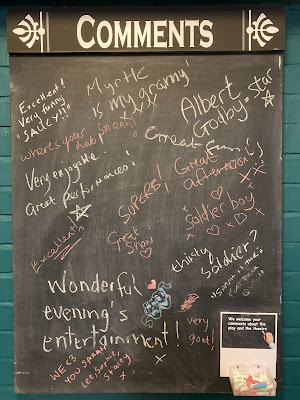 COMMENTS
Excellent!
Very funny
"SAUCY!!"
Myrtle
is my granny!
xxx
Albert
Godby = star
where's your
Great fun!
Very enjoyable
Great performances!
SUPERB!
Great
afternoon
Soldier boy
x x
Excellent
Great
Show!
thirsty
Soldier?
Wonderful
evening's
entertainment!
very
good!
x
WE <3
YOU SARAH
Lee, Sophie,
Stacey
x
We welcome your
comments about the
play and the theatre